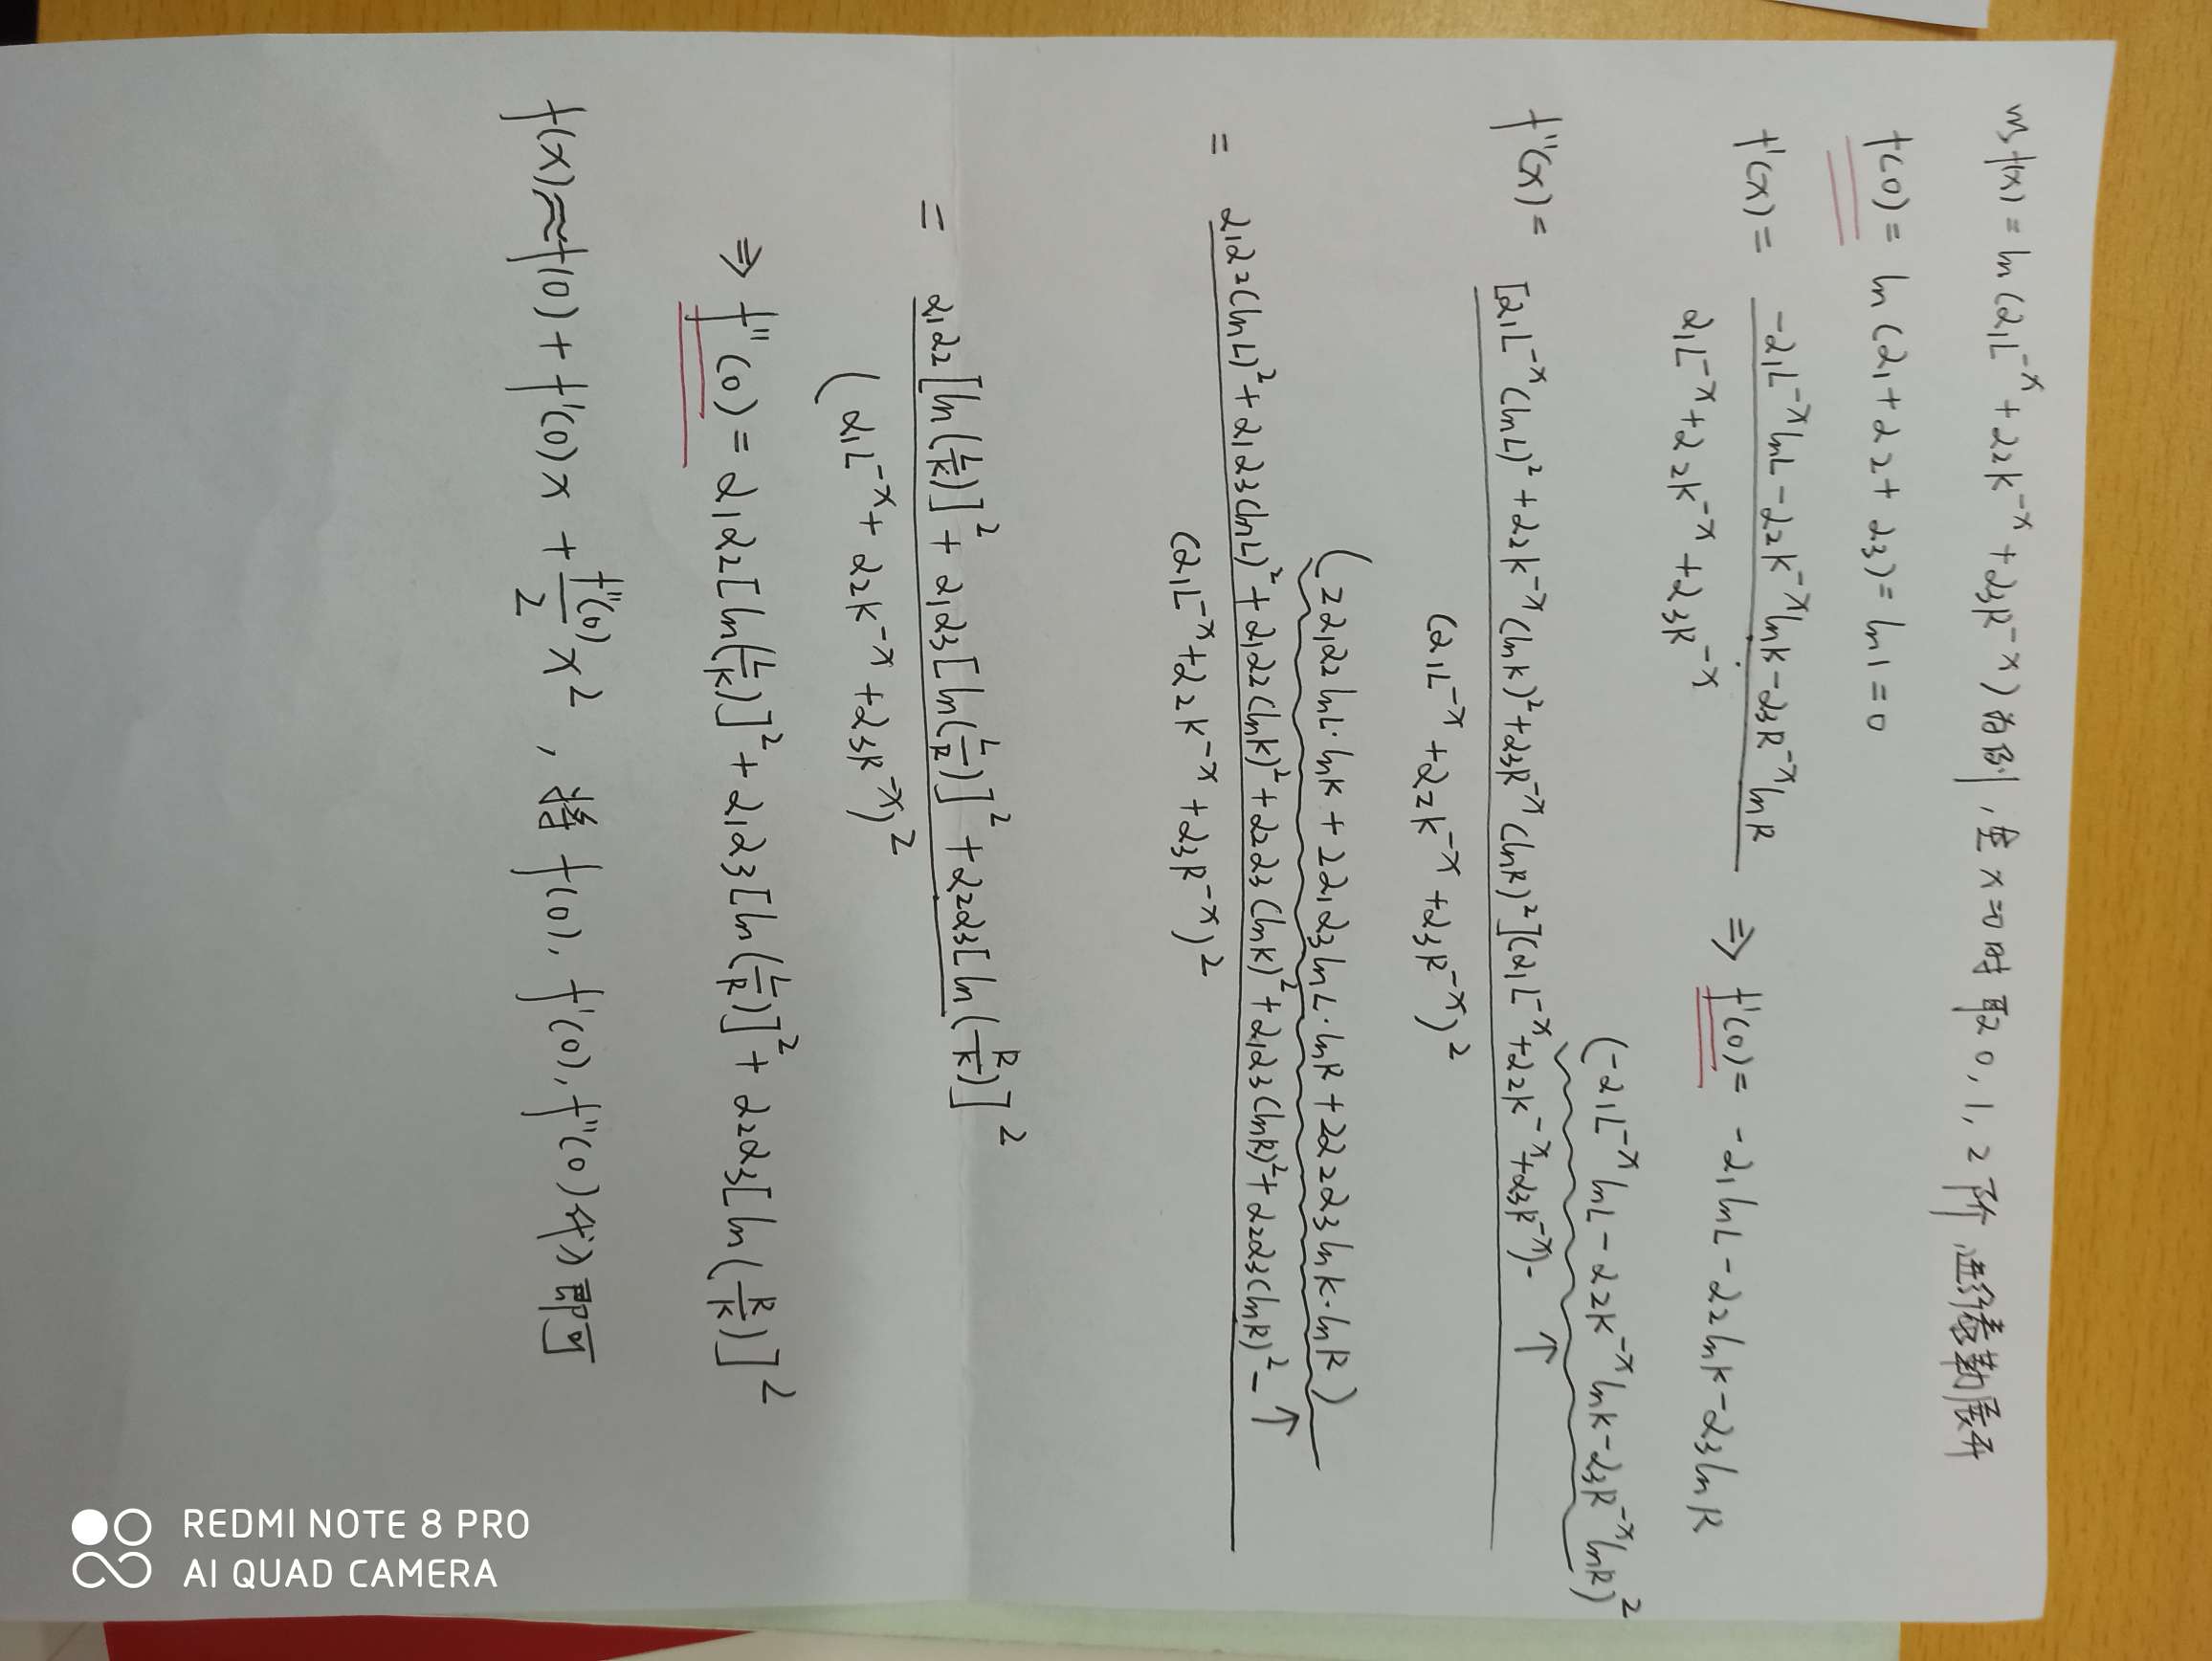 以f(x) = ln(α₁L⁻ˣ + α₂K⁻ˣ + α₃R⁻ˣ)为例,在x=0时取0,1,2阶进行泰勒展开
f(0) = ln(α₁+α₂+α₃) = ln1 = 0
f'(x) = (-α₁L⁻ˣlnL - α₂K⁻ˣlnK - α₃R⁻ˣlnR) / (α₁L⁻ˣ + α₂K⁻ˣ + α₃R⁻ˣ) ⇒ f'(0) = -α₁lnL - α₂lnK - α₃lnR
(-α₁L⁻ˣlnL - α₂K⁻ˣlnK - α₃R⁻ˣlnR)²
f''(x) = [α₁L⁻ˣ(lnL)² + α₂K⁻ˣ(lnK)² + α₃R⁻ˣ(lnR)²](α₁L⁻ˣ + α₂K⁻ˣ + α₃R⁻ˣ) - ↑
(α₁L⁻ˣ + α₂K⁻ˣ + α₃R⁻ˣ)²
(2α₁α₂lnL·lnK + 2α₁α₃lnL·lnR + 2α₂α₃lnK·lnR)
= α₁α₂(lnL)² + α₁α₃(lnL)² + α₁α₂(lnK)² + α₂α₃(lnK)² + α₁α₃(lnR)² + α₂α₃(lnR)² - ↑
(α₁L⁻ˣ + α₂K⁻ˣ + α₃R⁻ˣ)²
= α₁α₂[ln(L/K)]² + α₁α₃[ln(L/R)]² + α₂α₃[ln(R/K)]²
(α₁L⁻ˣ + α₂K⁻ˣ + α₃R⁻ˣ)²
⇒ f''(0) = α₁α₂[ln(L/K)]² + α₁α₃[ln(L/R)]² + α₂α₃[ln(R/K)]²
f(x) ≈ f(0) + f'(0)x + f''(0)/2 x² , 将f(0), f'(0), f''(0)代入即可
REDMI NOTE 8 PRO
AI QUAD CAMERA